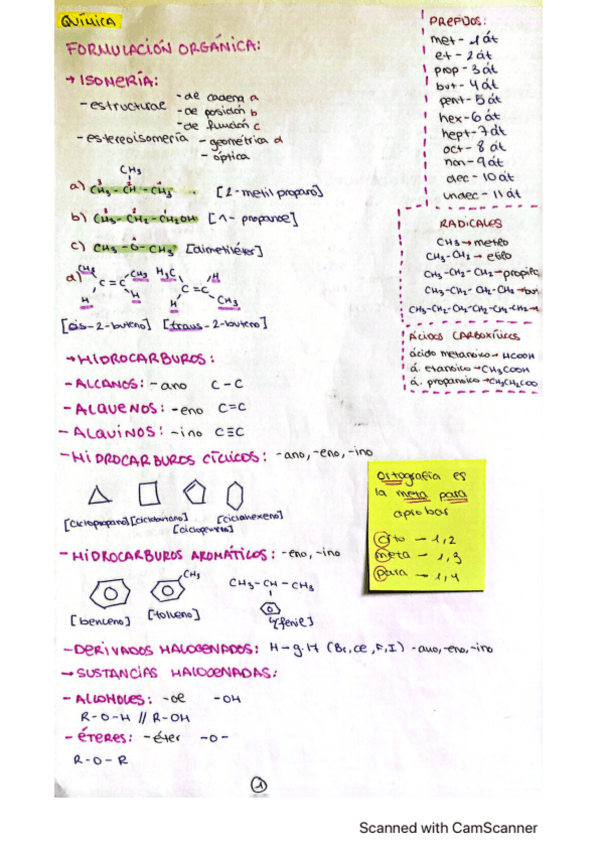 QUÍMICA
FORMULACIÓN ORGÁNICA:
→ ISOMERÍA:
- estructural - de cadena a
- de posición b
- de función c
- estereoisomería - geométrica d
- óptica
CH3
a) CH3 - CH - CH3 [2-metil propano]
b) CH3 - CH2 - CH2OH [1- propanol]
c) CH3 - O - CH3 [dimetiléter]
d) CH3 CH3 H3C H
C=C C=C
H H H CH3
[cis-2-buteno] [trans-2-buteno]
→ HIDROCARBUROS:
- ALCANOS: - ano C - C
- ALQUENOS: - eno C=C
- ALQUINOS: - ino C≡C
- HIDROCARBUROS CÍCLICOS: -ano, -eno, -ino
[ciclopropano] [ciclobutano] [ciclohexeno]
- HIDROCARBUROS AROMÁTICOS: -eno, -ino
CH3
CH3 - CH - CH3
[benceno] [tolueno] [fenil]
- DERIVADOS HALOGENADOS: H - g.H (Br, Cl, F, I) -ano, -eno, -ino
→ SUSTANCIAS HALOGENADAS:
- ALCOHOLES: -ol -OH
R - O - H // R - OH
- ÉTERES: - éter -O-
R - O - R
1
PREFIJOS:
met - 1 át
et - 2 át
prop - 3 át
but - 4 át
pent - 5 át
hex - 6 át
hept - 7 át
oct - 8 át
non - 9 át
dec - 10 át
undec - 11 át
RADICALES
CH3 → metilo
CH3 - CH2 → etilo
CH3 - CH2 - CH2 → propilo
CH3 - CH2 - CH2 - CH2 → but
CH3 - CH2 - CH2 - CH2 - CH2 - CH2 →
ÁCIDOS CARBOXÍLICOS
ácido metanoico → HCOOH
á. etanoico → CH3COOH
á. propanoico → CH3CH2COO
Ortografía es
la meta para
aprobar
orto - 1,2
meta - 1,3
para - 1,4
Scanned with CamScanner